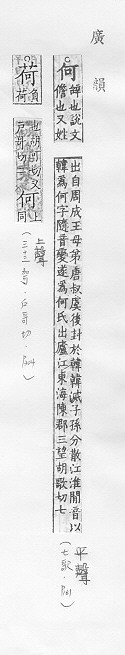 廣韻
何 辝也說文儋也又姓出自周成王母弟唐叔虞後封於韓韓滅子孫分散江淮間音以韓爲何字隨音變遂爲何氏出廬江東海陳郡三望胡歌切七
平聲
(七歌．P.161
荷 負荷
也胡可切又戶哥切 何 上同
上聲
(三十三哿．戶哥切．P.304